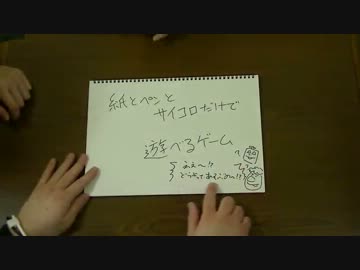 紙とペンと
サイコロだけで
遊べるゲーム
ええ〜!?
どうやってあそぶの〜!?